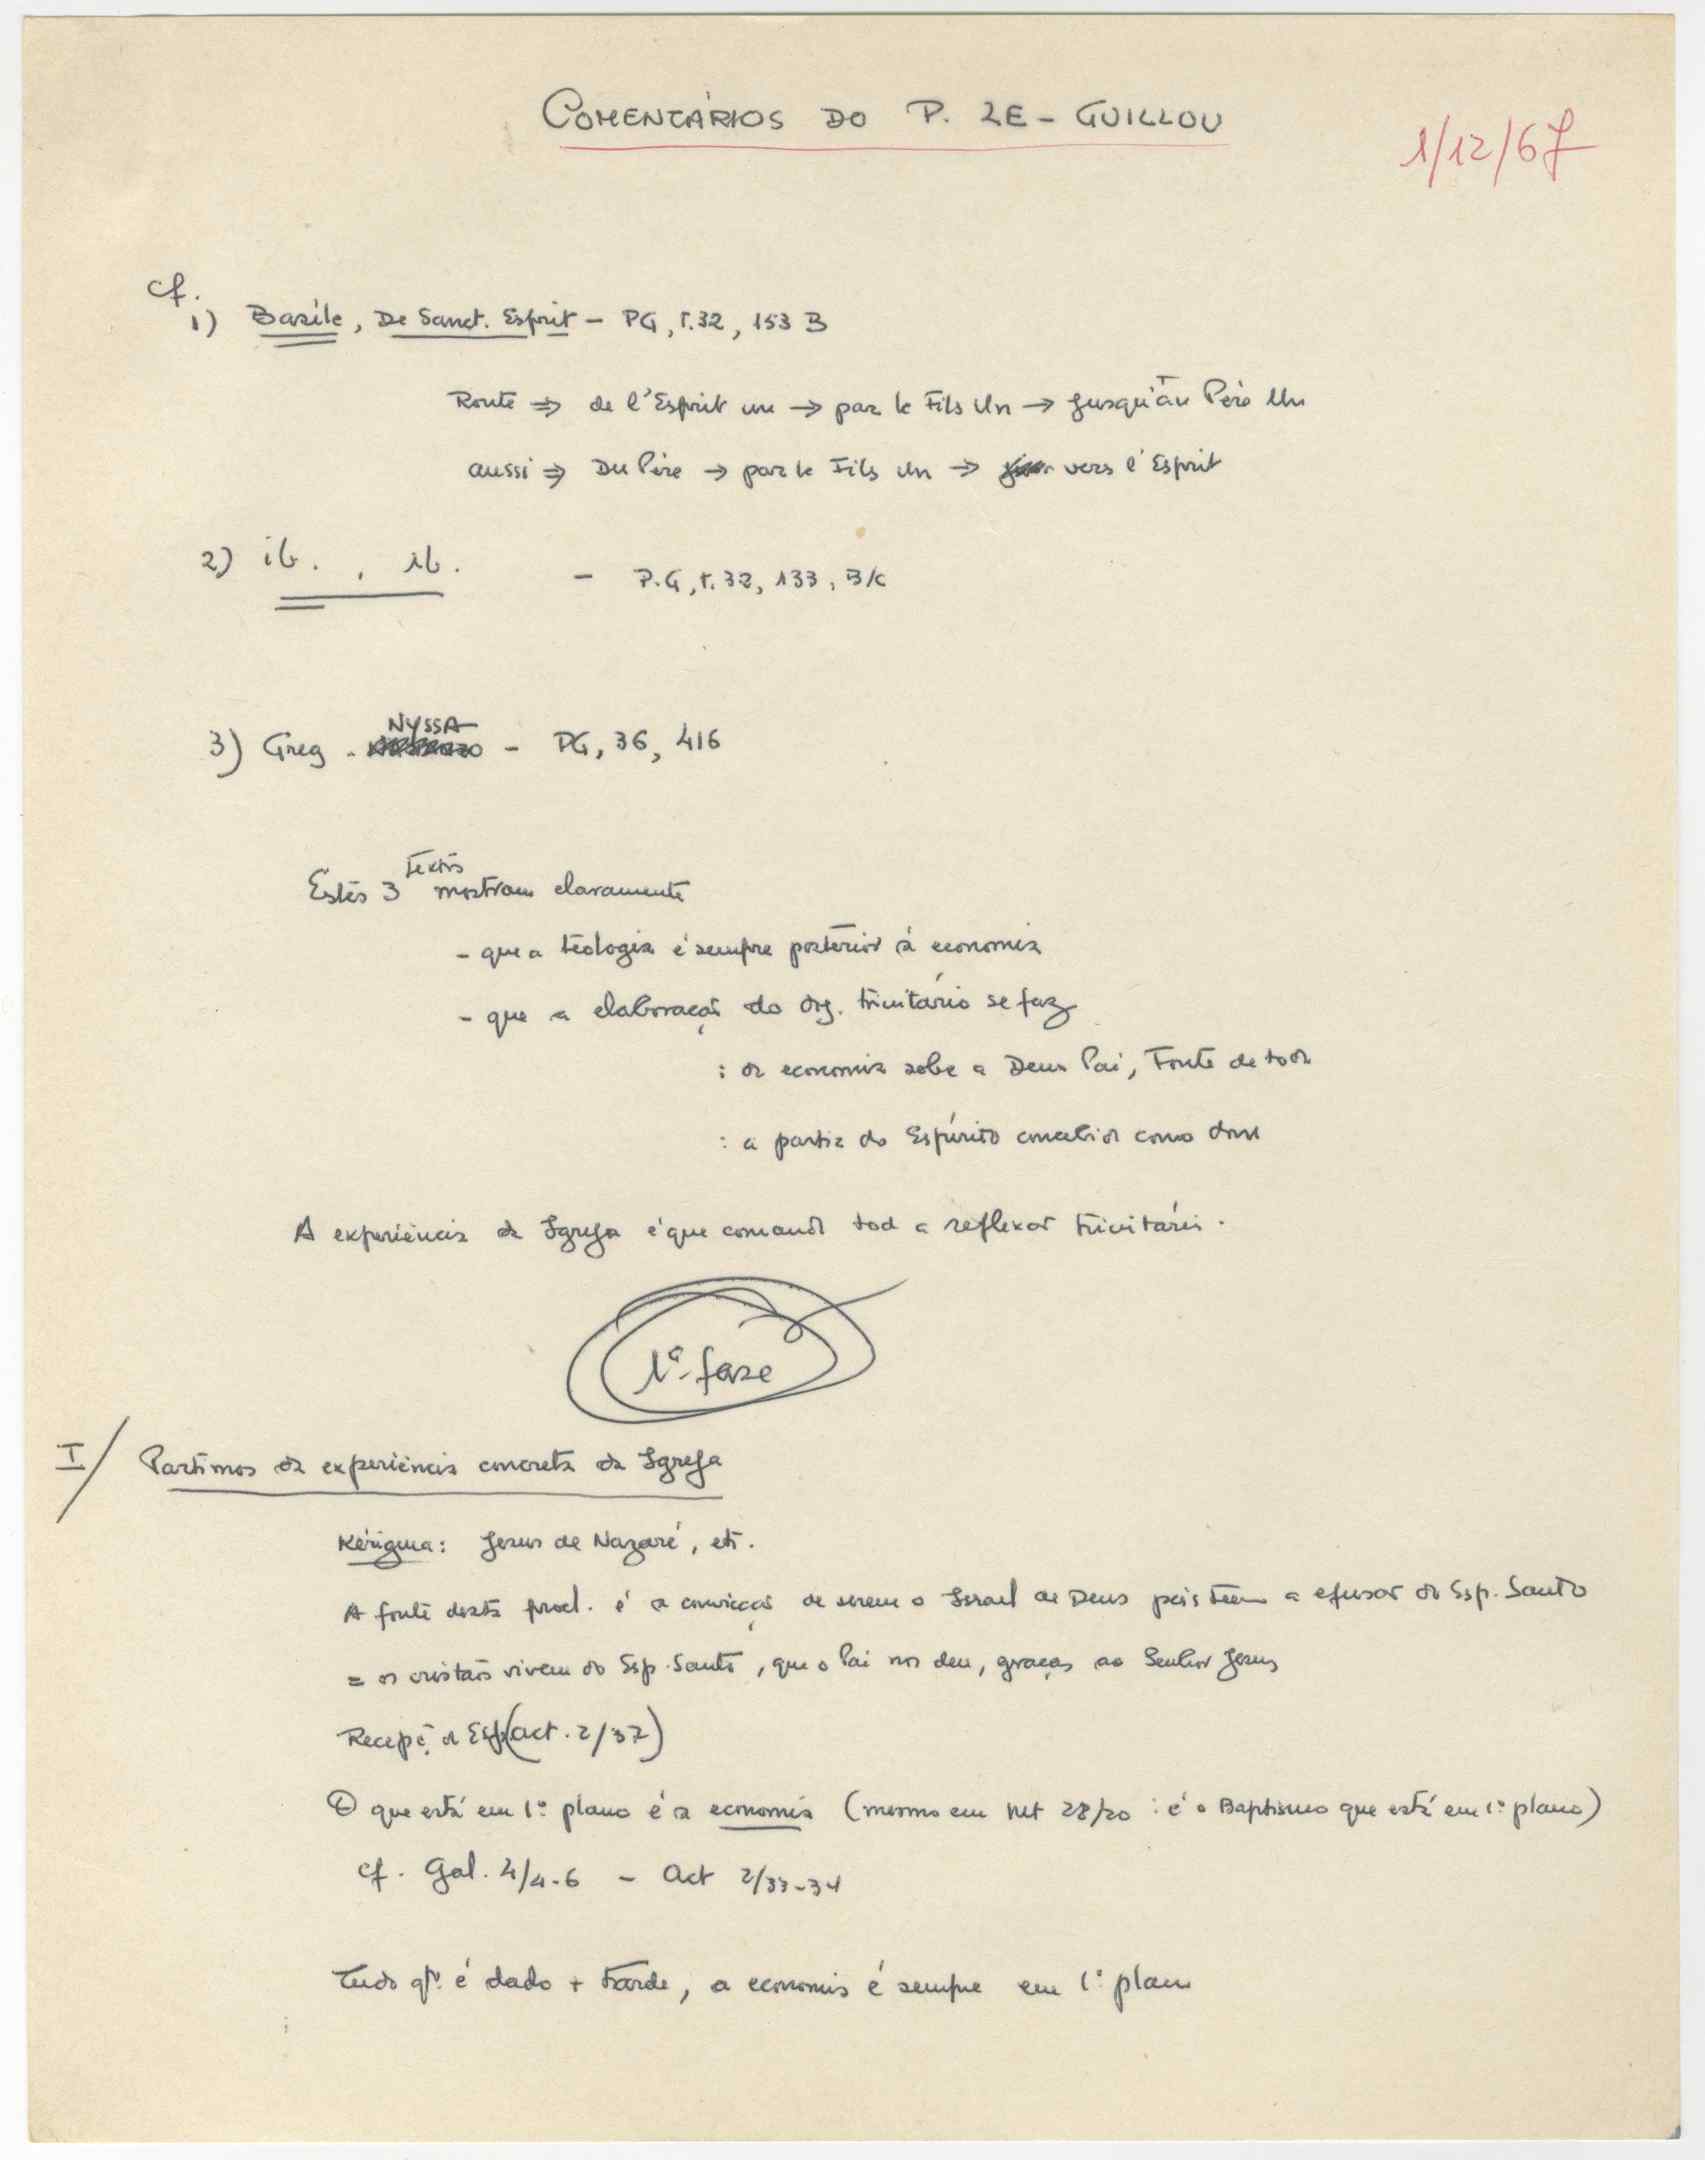 COMENTÁRIOS DO P. LE-GUILLOU
1/12/67
cf.
1) Basile, De Sanct. Esprit - PG, t.32, 153 B
Route => de l'Esprit un -> par le Fils Un -> jusqu'au Père Un
aussi => Du Père -> par le Fils Un -> vers l'Esprit
2) ib. , ib. - P.G, t.32, 133, B/C
3) Greg. NYSSA - PG, 36, 416
Estes 3 textos mostram claramente
- que a teologia é sempre posterior à economia
- que a elaboração do trinitário se faz
: da economia sobe a Deus Pai, Fonte de toda
: a partir do Espírito concebido como dom
A experiência da Igreja é que comanda toda a reflexão trinitária.
1ª fase
I/ Partimos da experiência concreta da Igreja
Kérigma: Jesus de Nazaré, etc.
A fonte desta procl. é a convicção de serem o Israel de Deus pois têem a efusão do Esp. Santo
= os cristãos vivem do Esp. Santo, que o Pai nos deu, graças ao Senhor Jesus
Recepç. do Esp (act. 2/37)
O que está em 1º plano é a economia (mesmo em Mt 28/20 : é o Baptismo que está em 1º plano)
cf. Gal. 4/4-6 - Act 2/33-34
Tudo qto é dado + tarde, a economia é sempre em 1º plano